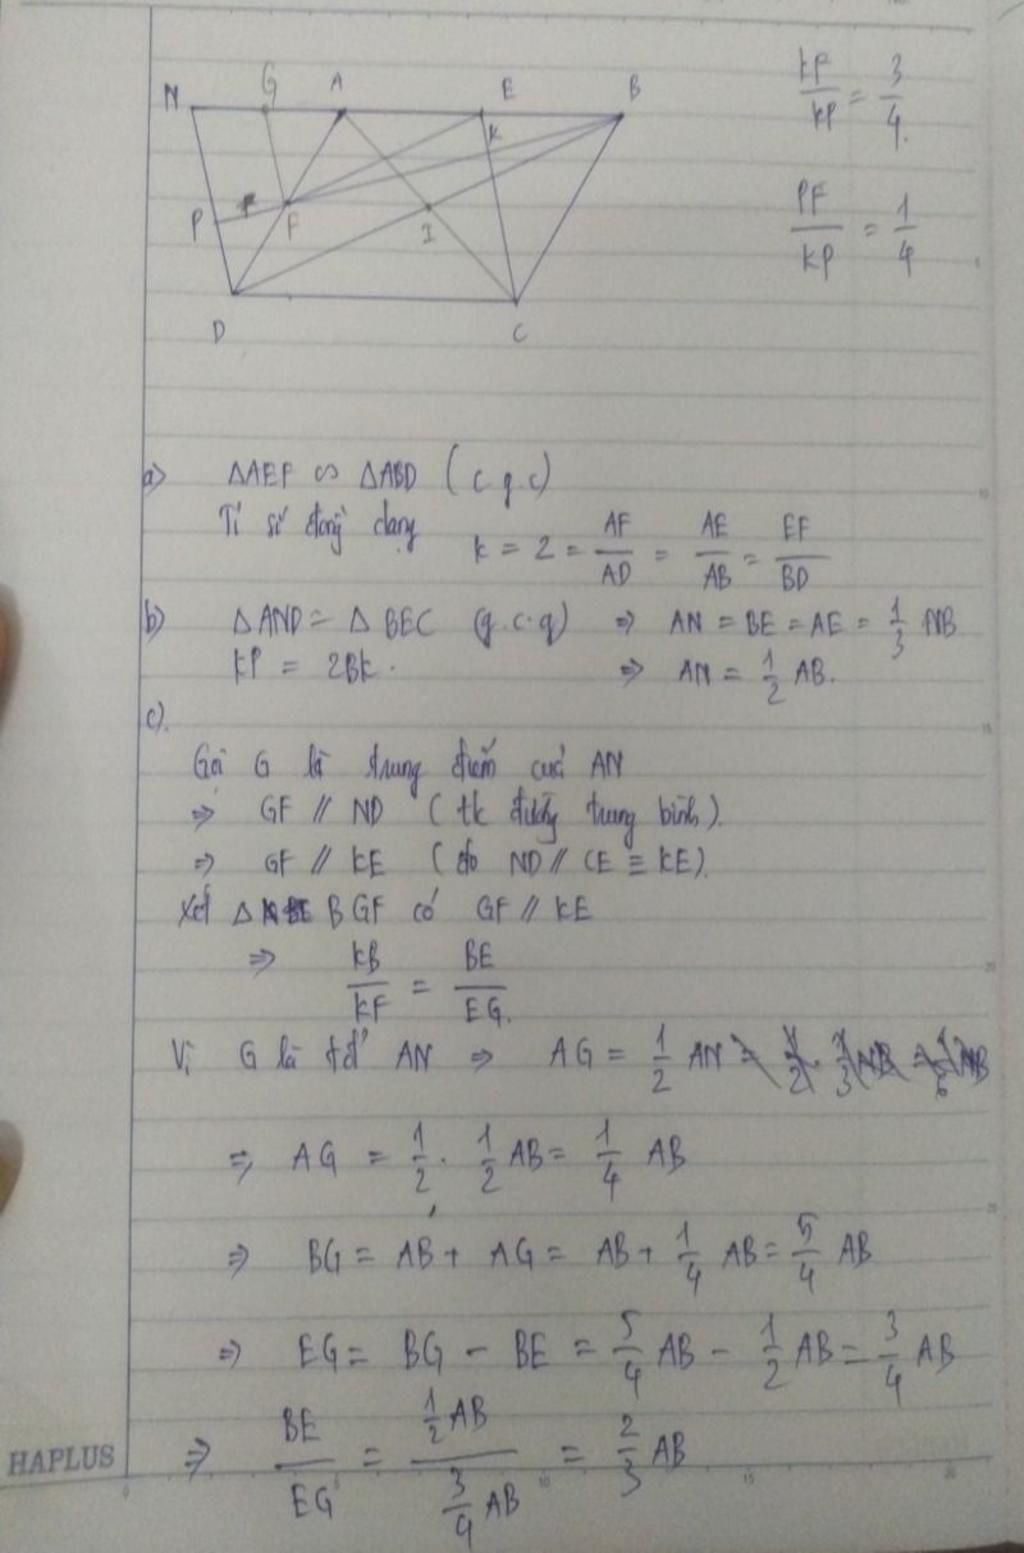 N G A E B
K
P F I
D C
KF/KP = 3/4.
PF/KP = 1/4
a) ΔAEF ∽ ΔABD (c g c)
Tỉ số đồng dạng k = 2 = AF/AD = AE/AB = EF/BD
b) ΔAND = ΔBEC (g.c.g) => AN = BE = AE = 1/3 NB
KP = 2BK. => AN = 1/2 AB.
c).
Gọi G là trung điểm của AN
=> GF // ND (tk đường trung bình).
=> GF // KE (do ND // CE ≡ KE).
Xét Δ BGF có GF // KE
=> KB/KF = BE/EG.
Vì G là tđ AN => AG = 1/2 AN
=> AG = 1/2 . 1/2 AB = 1/4 AB
=> BG = AB + AG = AB + 1/4 AB = 5/4 AB
=> EG = BG - BE = 5/4 AB - 1/2 AB = 3/4 AB
=> BE/EG = 1/2 AB / 3/4 AB = 2/3 AB
HAPLUS